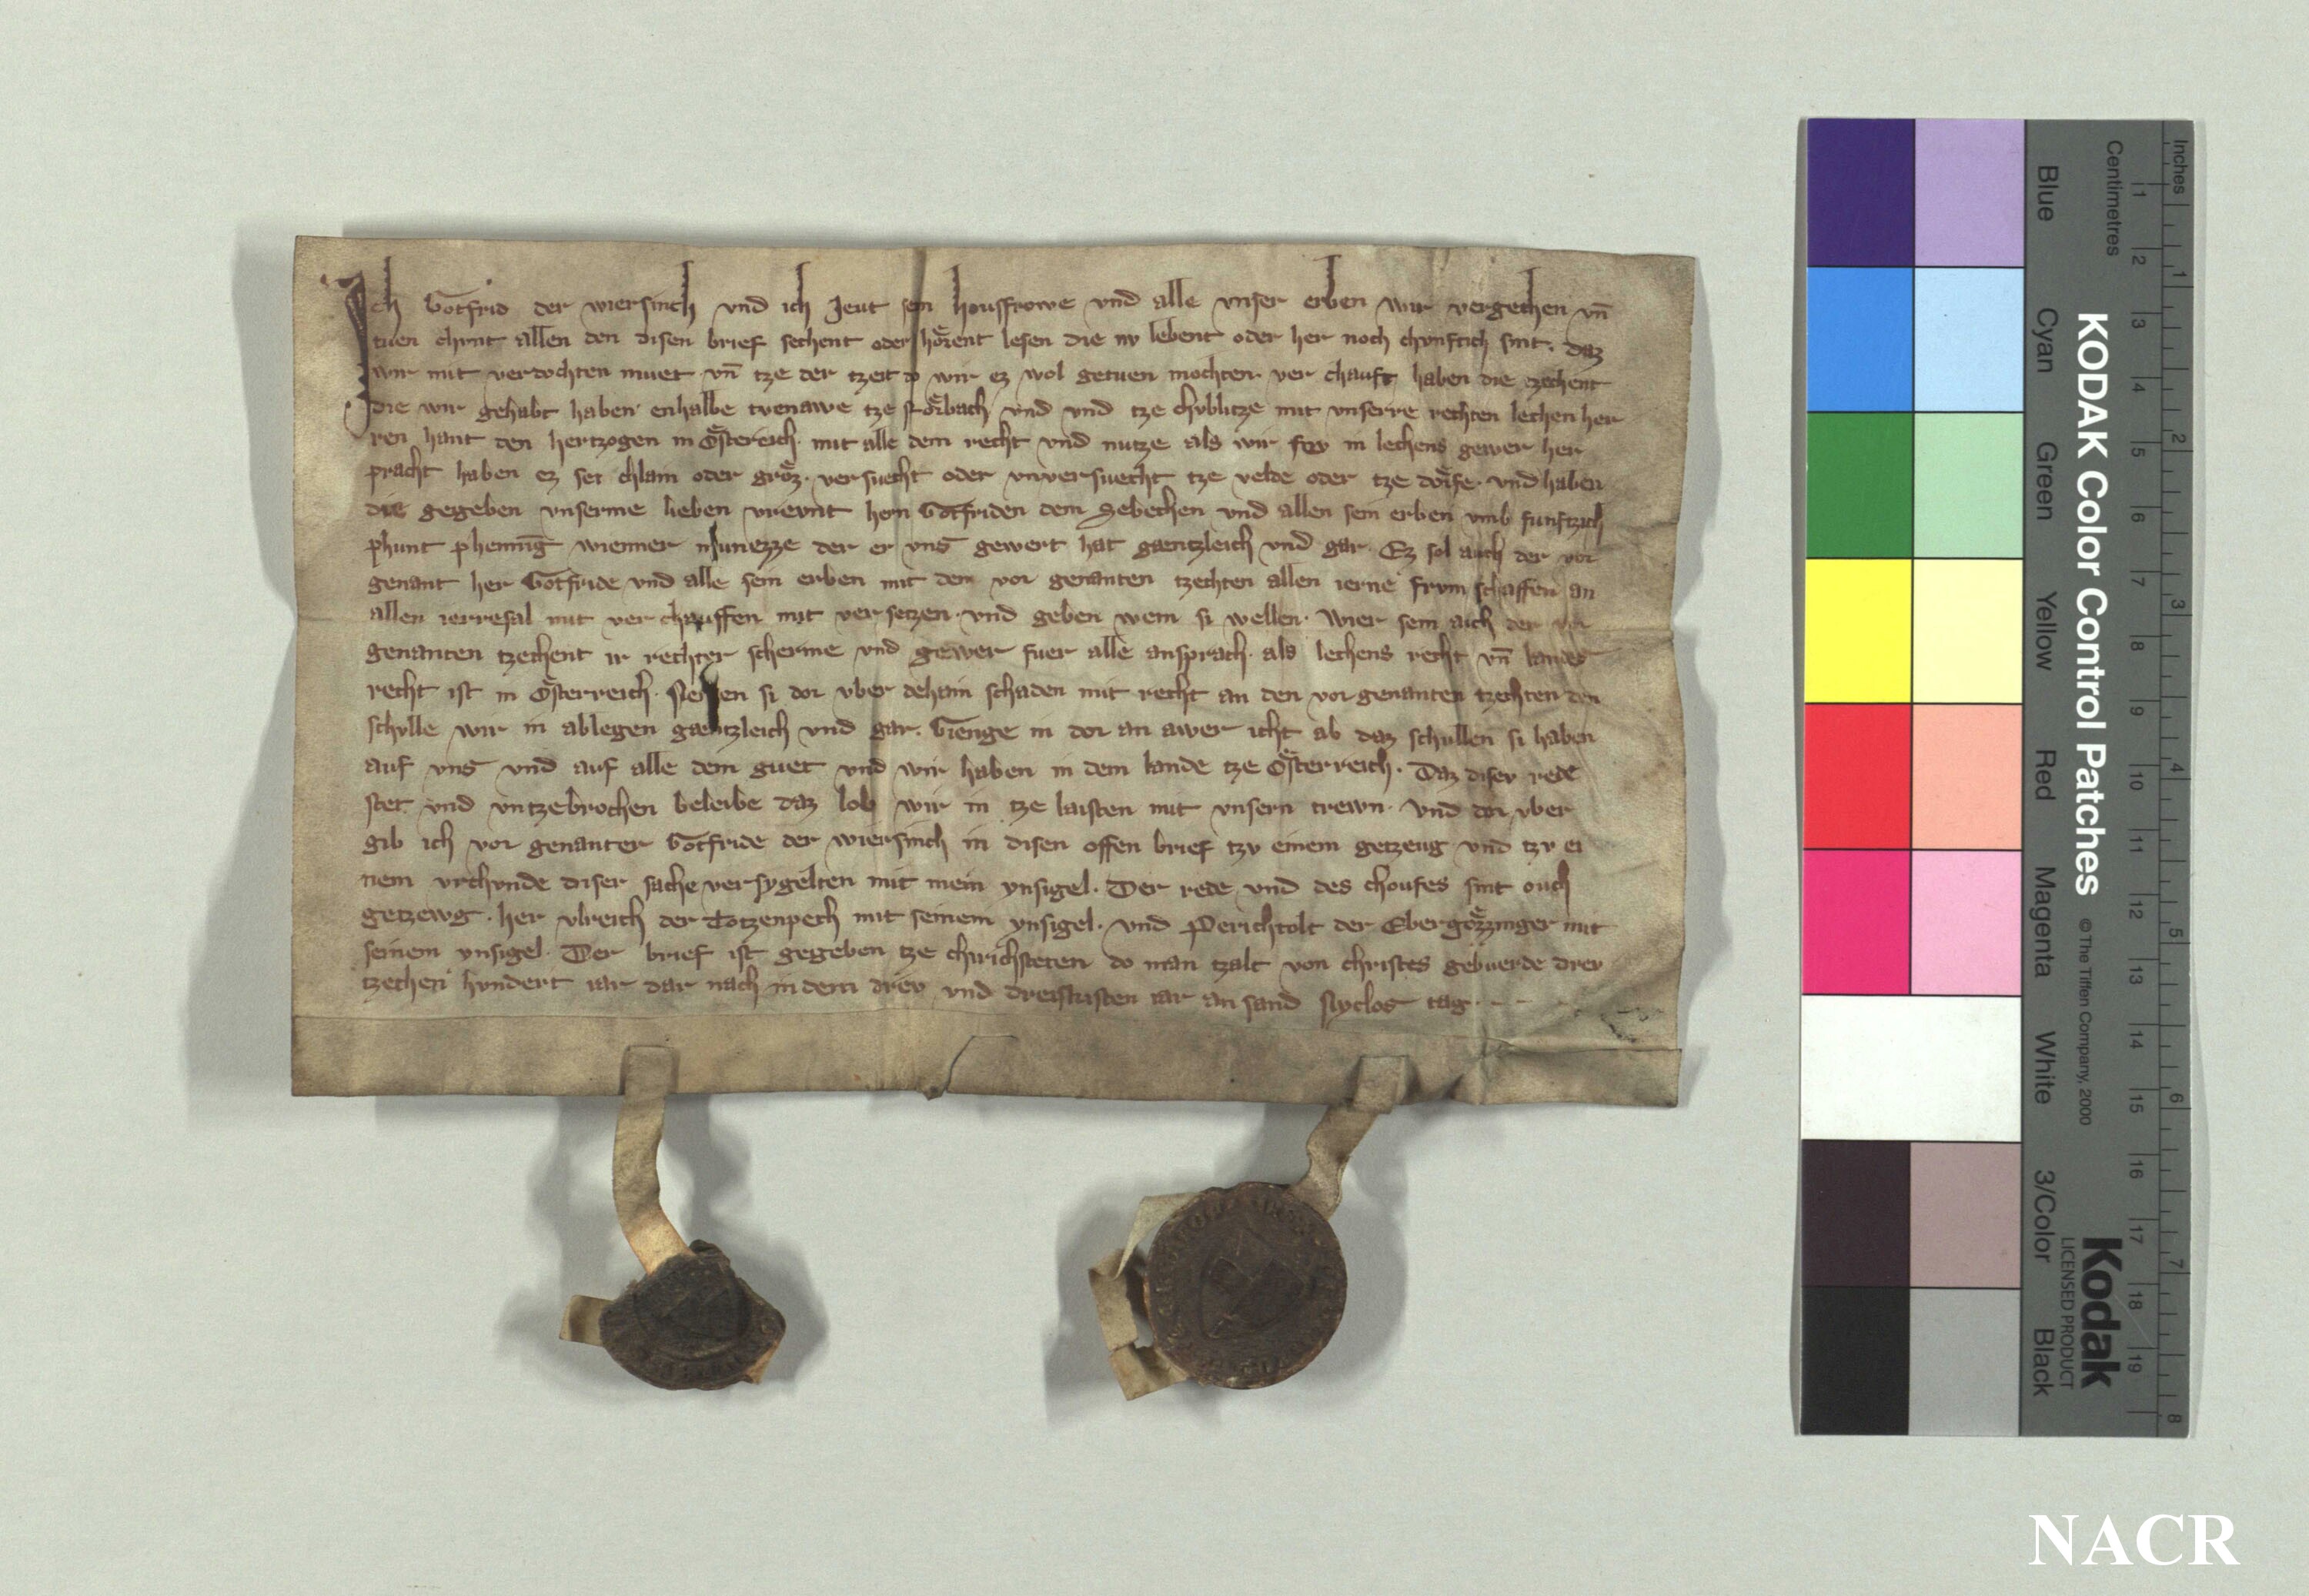 Ich Gotfrid der wiersinch vnd ich Jeut sein housfrowe vnd alle vnser erben wir vergechen vn̄
tuen chunt allen den disen brief sechent oder hoͤrent lesen die nv lebent oder her noch chvnftich sint. daz
wir mit verdochten muet vn̄ tze der tzeit do wir ez wol getuen mochten ver chauft haben die tzechent
die wir gehabt haben enhalbe tvenawe tze vnd vnd tze chvblitze mit vnserre rechten lechen her
ren hant den hertzogen in Oͤstereich. mit alle dem recht vnd nutze als wir in lechens gewer her
pracht haben ez sei chlain oder groͤz. versuecht oder vnversuecht tze velde oder tze doͤrfe. vnd haben
die gegeben vnserme lieben vrevnt hern Gotfriden dem Sebechen vnd allen sein erben vmb funftzich
phunt phenning wienner munezze der er vns gewert hat gaentzleich vnd gar. Ez sol auch der vor
genant her Gotfride vnd alle sein erben mit den vor genanten tzechten allen ierne frvm schaffen an
allen ierresal mit ver chauffen mit ver setzen. vnd geben wem si wellen. Wier sein aich der vor
genanten tzechent ir rechter scherme vnd gewer fuer alle ansprach. als lechens recht vn̄ landes
recht ist in Oͤsterreich. Nemen si dor vber dehain schaden mit recht an den vor genanten tzechten den
schvlle wir in ablegen gaentzleich vnd gar. Gienge in dor an awer icht ab daz schullen si haben
auf vns vnd auf alle dem guet vnd wir haben in dem lande tze Oͤsterreich. Daz disev rede
stet vnd vntzebrochen beleibe daz lob wir in tze laisten mit vnsern trewn. Vnd dor vber
gib ich vor genanter Gotfride der wiersinch in disen offen brief tzv einem getzeug vnd tzv ei
nem vrchvnde diser sache versygelten mit mein ynsigel. Der rede vnd des choufes sint ouch
getzewg. her vlreich der Totzenpech mit seinem ynsigel. vnd Perichtolt der Ebergoͤzzinger mit
seinem ynsigel. Der brief ist gegeben tze chirichsteten do man tzalt von christes gebuerde drev
tzechen hvndert iar dar nach in dem drev vnd dreiskisten iar an sand Nyclos tag.
KODAK Color Control Patches
© The Tiffen Company, 2000
Kodak
LICENSED PRODUCT
Inches
1 2 3 4 5 6 7 8
Centimetres
1 2 3 4 5 6 7 8 9 10 11 12 13 14 15 16 17 18 19
Blue
Cyan
Green
Yellow
Red
Magenta
White
3/Color
Black
NACR